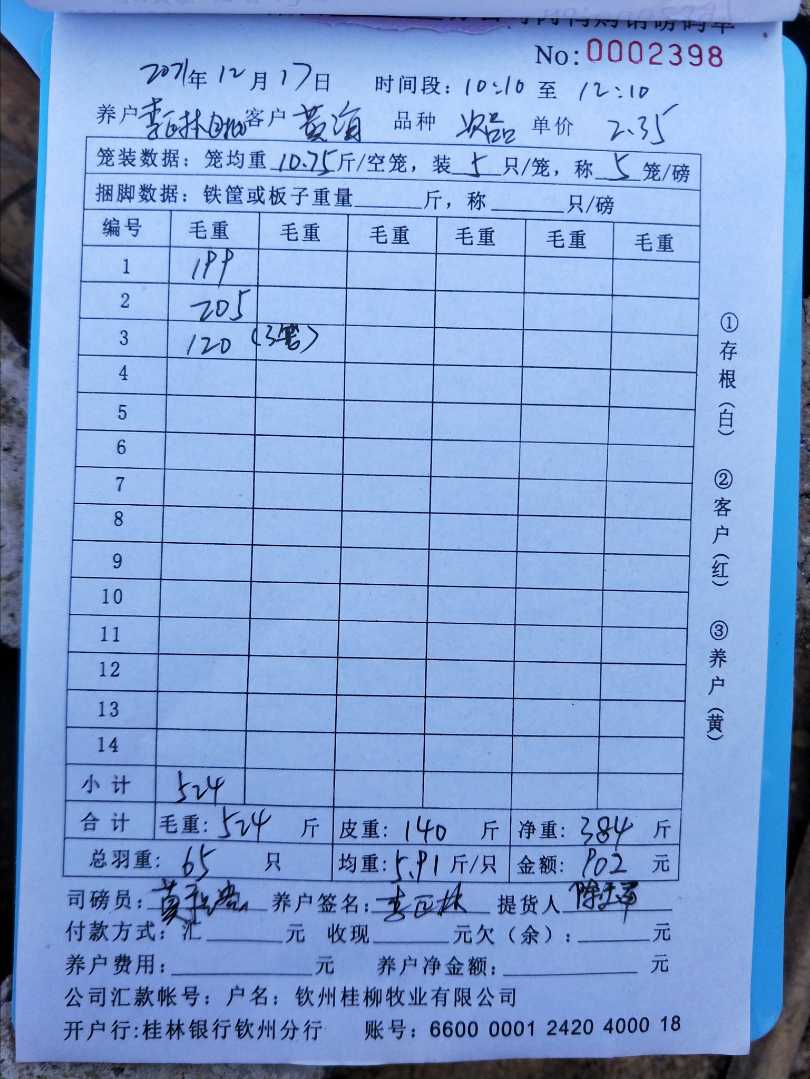 No: 0002398
2021年12月17日 时间段: 10:10 至 12:10
养户 李正林 客户 黄海 品种 次品 单价 2.35
笼装数据: 笼均重 10.75 斤/空笼, 装 5 只/笼, 称 5 笼/磅
捆脚数据: 铁筐或板子重量______斤, 称______只/磅
编号 毛重 毛重 毛重 毛重 毛重 毛重
1 199
2 205
3 120 (3笼)
4
5
6
7
8
9
10
11
12
13
14
小计 524
合计 毛重: 524 斤 皮重: 140 斤 净重: 384 斤
总羽重: 65 只 均重: 5.91 斤/只 金额: 902 元
司磅员: 养户签名: 李正林 提货人
付款方式: 汇______元 收现______元欠(余): ______元
养户费用: ______元 养户净金额: ______元
公司汇款帐号: 户名: 钦州桂柳牧业有限公司
开户行:桂林银行钦州分行 账号: 6600 0001 2420 4000 18
①存根(白) ②客户(红) ③养户(黄)